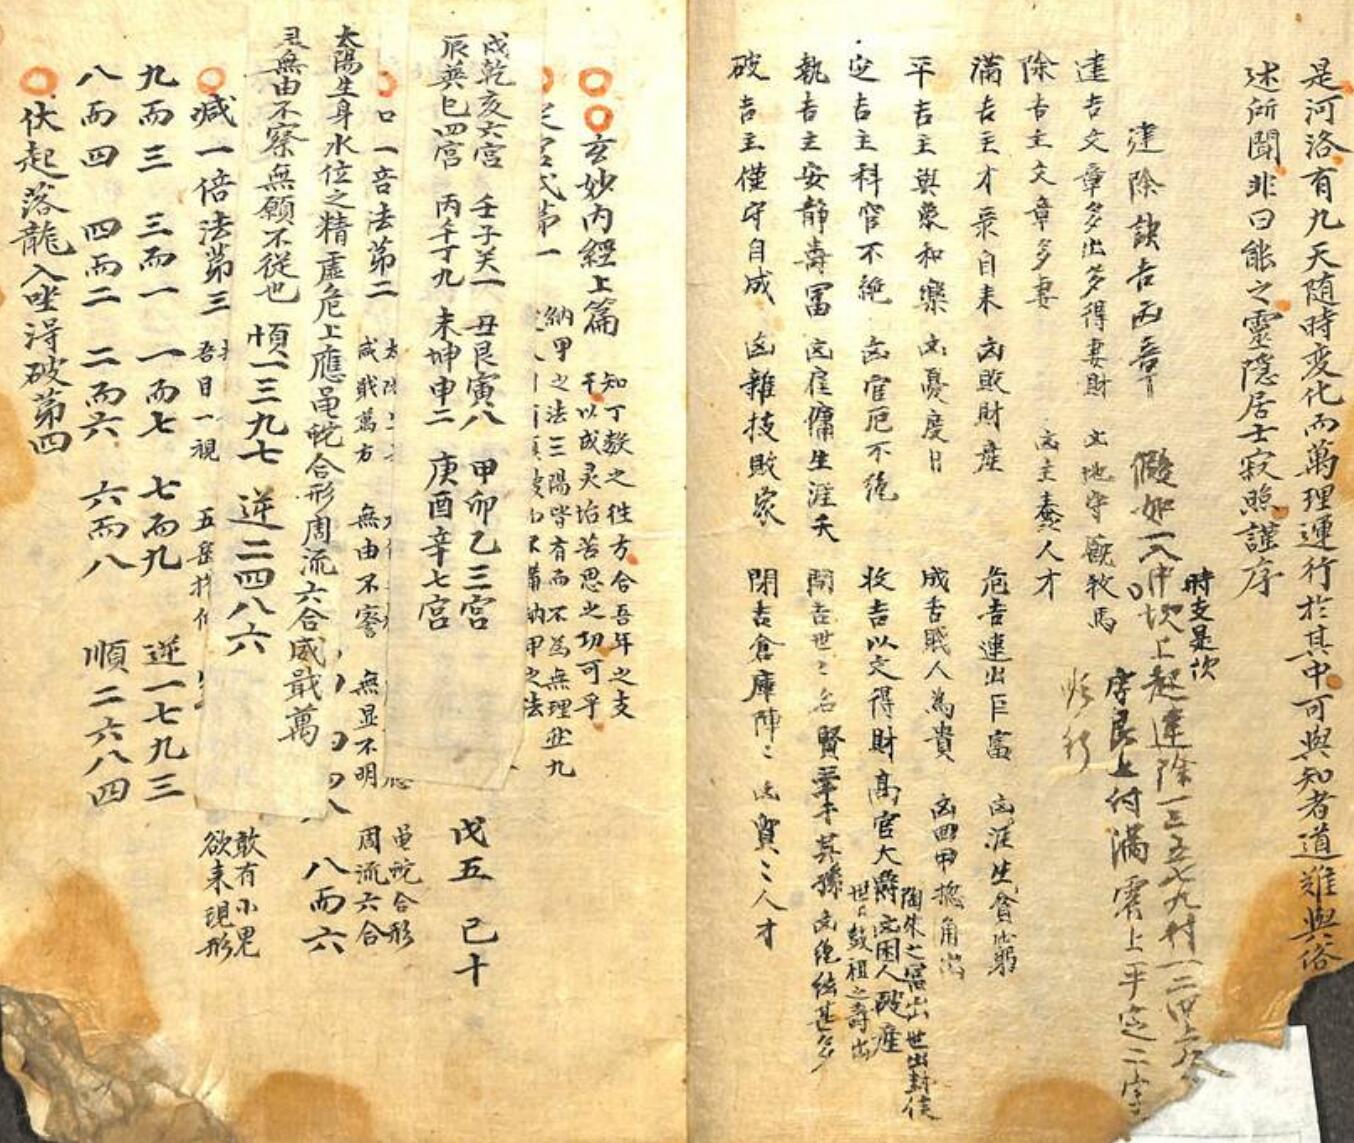 是河洛有九天随時変化而萬理運行於其中可與知者道難與俗
述所聞非曰能之靈隱居士寂照謹序
建除訣吉凶章 假如一入中坎上起建除一三五七九付一二四六八
時支是坎
字艮上付滿震上平定二字
順行
建吉文章多出多得妻財 凶地守厩牧馬
除吉主文章多妻 凶主蠢人才
滿吉主才衆自来 凶敗財産 危吉連出巨富 凶涯生貧窮
平吉主與衆和樂 凶憂度日 成吉賤人為貴 凶四甲捴角
陶朱之富出世出封侯
定吉主科官不絶 凶官厄不绝 收吉以文得財高官大爵凶困人破産
世世彭祖之壽出
執吉主安靜壽冨 凶雇傭生涯夭 開吉世〻名賢華才其孫凶绝絃甚多
破吉主僅守自成 凶雜技敗家 閉吉倉庫陣〻凶貿〻人才
玄妙内經上篇 知丁数之性方合吾年之支
干以成灵治苦思之切可乎
第一 納甲之法三陽皆有而不為無理 九
納甲之法
戌乾亥六宮 壬子癸一 丑艮寅八 甲卯乙三宮
辰巽巳四宮 丙午丁九 未坤申二 庚酉辛七宮 戊五 己十
口一倍法苐二
咸戢萬方 無由不察 無显不明 黽蛇合形
周流六合
太陽生身水位之精虛危上應黽蛇合形周流六合咸戢萬
八而六
丑無由不察無願不從也 順一三九七 逆二四八六
減一倍法苐三 吾日一視 五岳 敢有小鬼
欲来現形
九而三 三而一 一而七 七而九 逆一七九三
八而四 四而二 二而六 六而八 順二六八四
伏起落龍入坐淂破第四